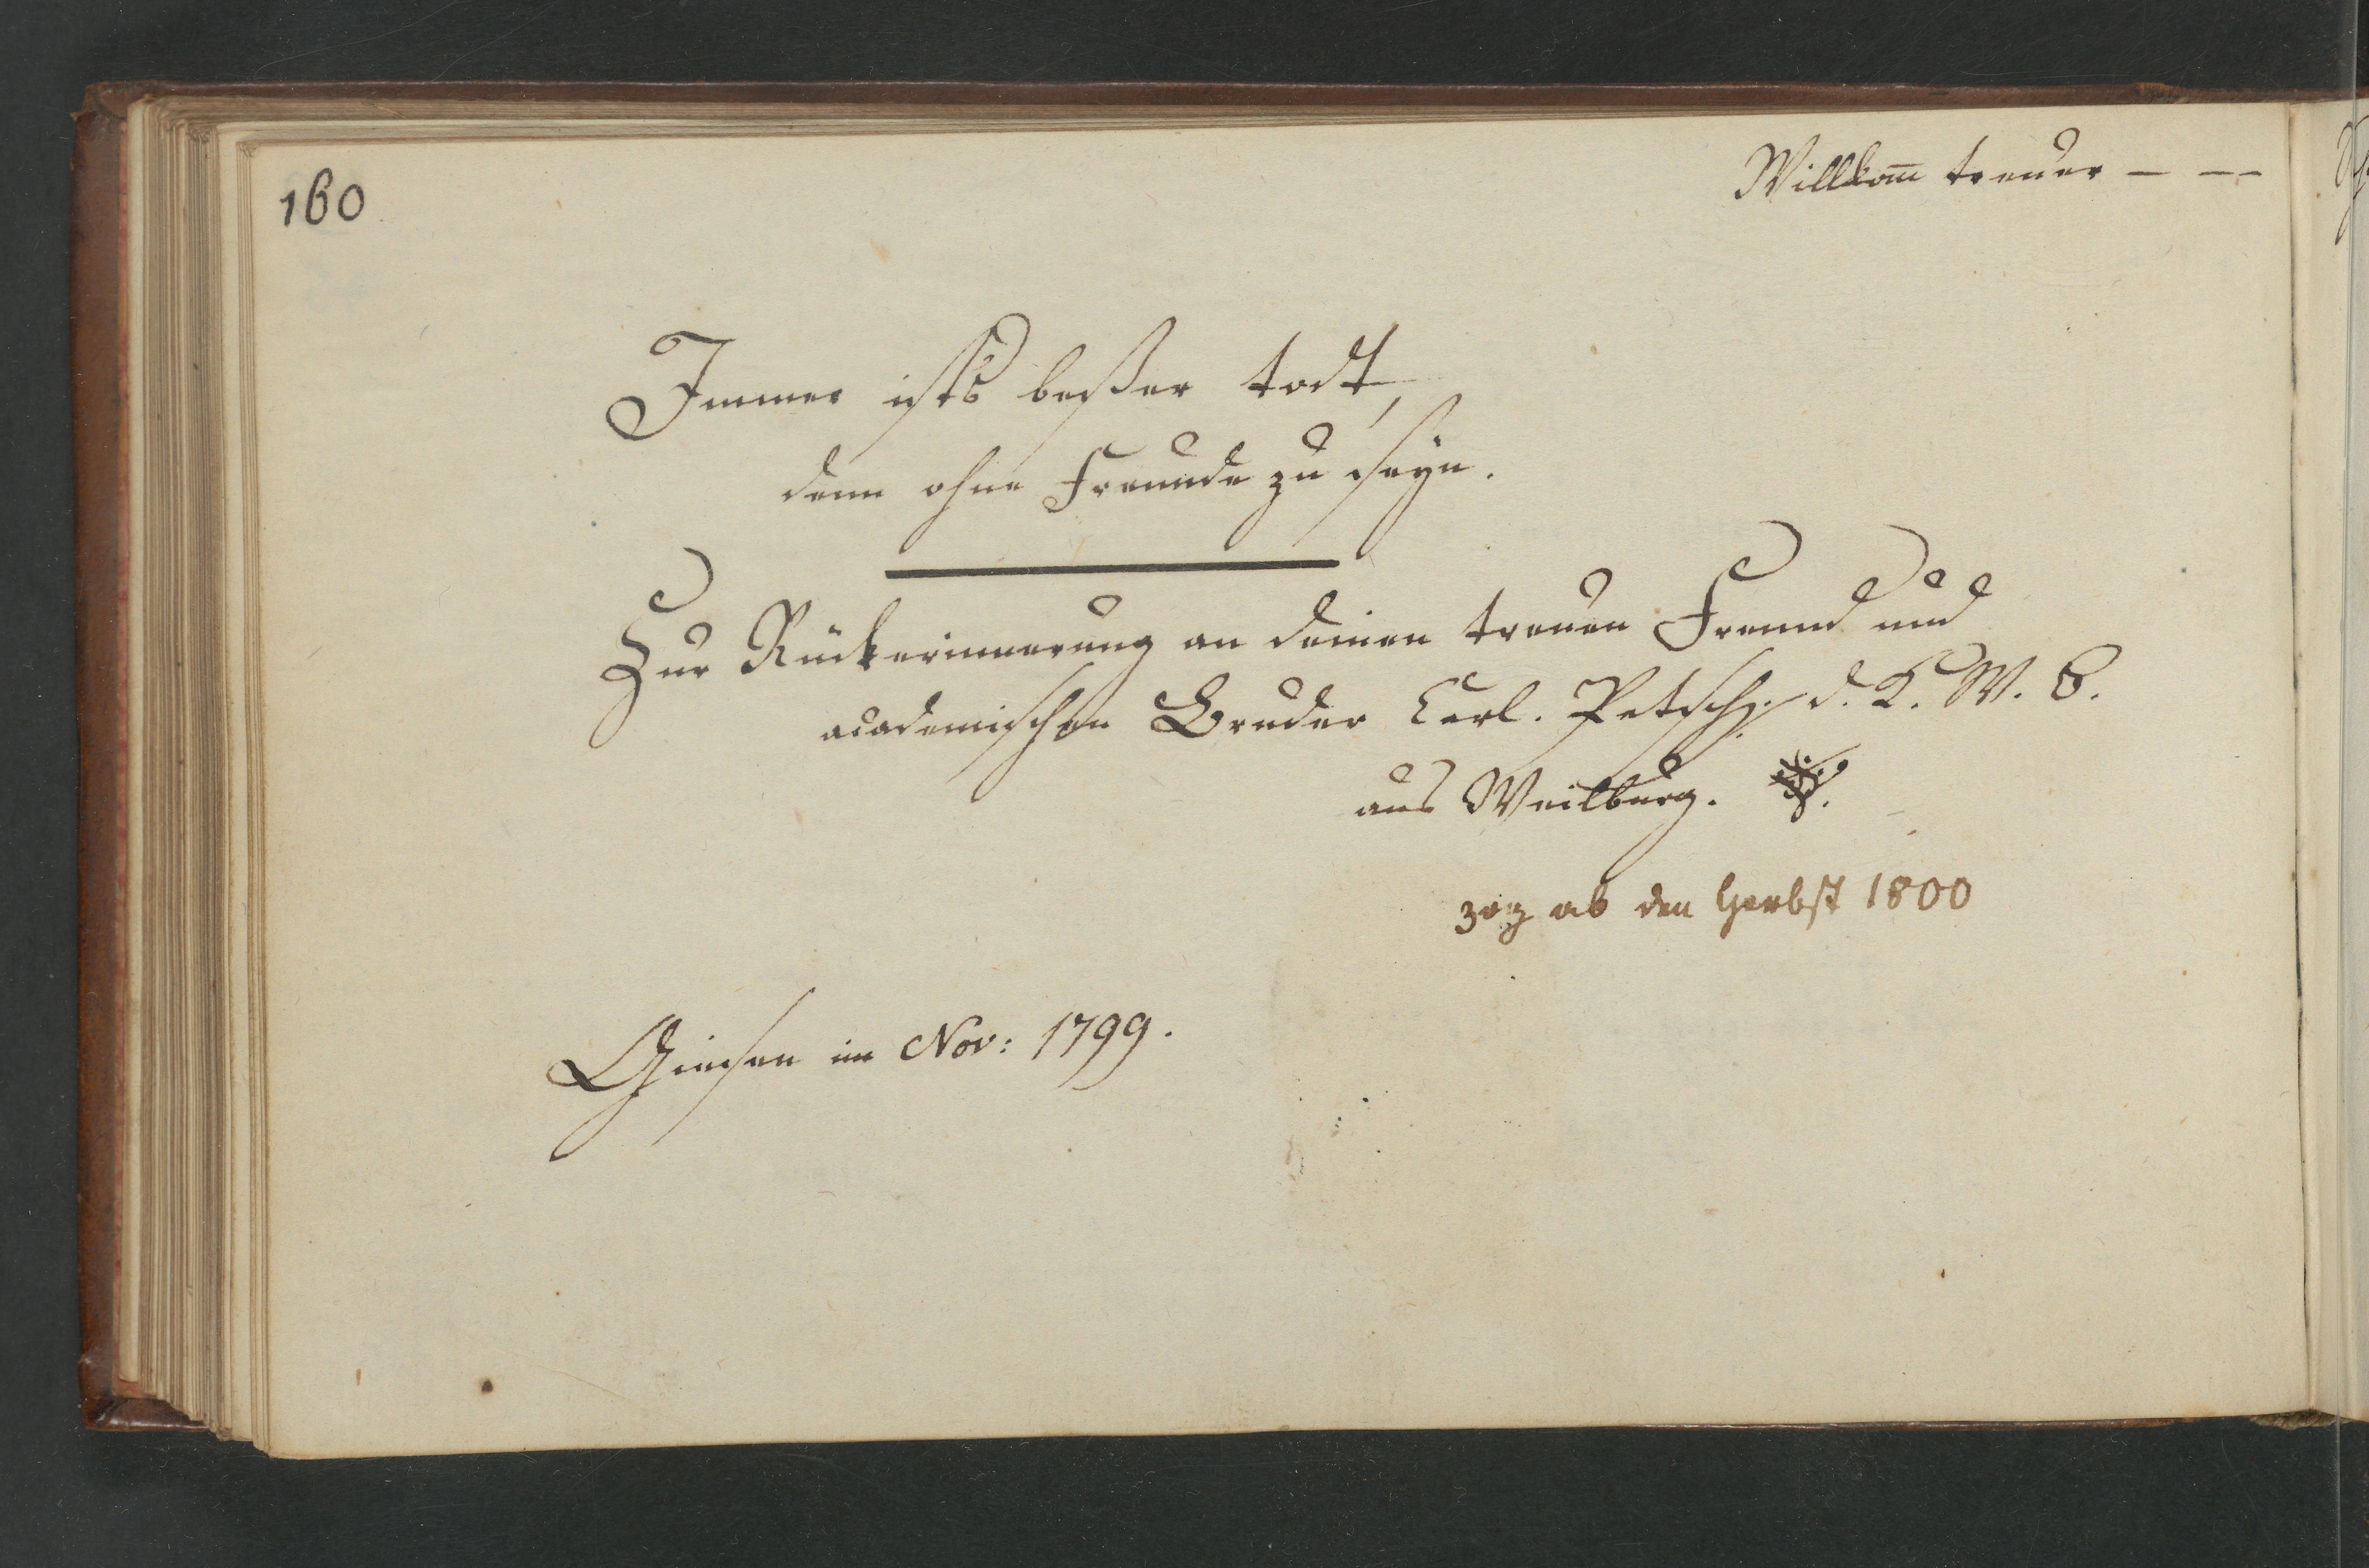 160
Willkom̅ treuer – – –
Immer ists beßer todt,
denn ohne Freunde zu seyn.
Zur Rückerinnerung an deinen treuen Freund und
academischen Bruder Carl. Petsch. d. K. W. B.
aus Weilburg.
zog ab den Herbst 1800
Giesen im Nov: 1799.